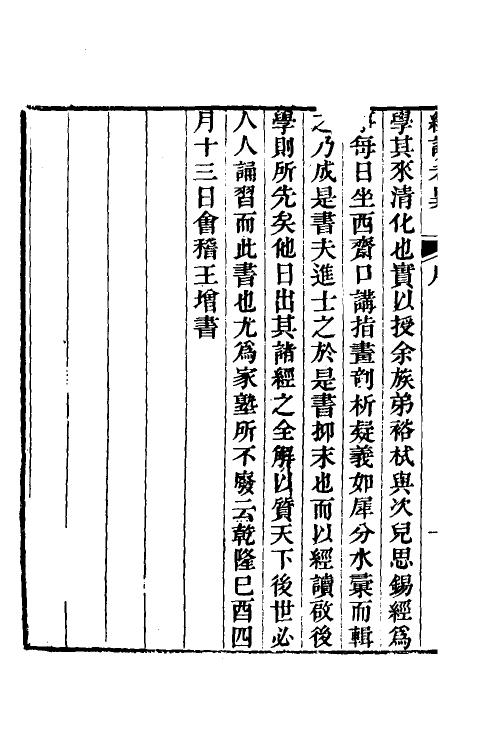 經讀考異 序 一
學其來清化也實以授余族弟裕栻與次兒思錫經爲
每日坐西齋口講指畫剖析疑義如犀分水彚而輯
之乃成是書夫進士之於是書抑末也而以經讀啟後
學則所先矣他日出其諸經之全解以質天下後世必
人人誦習而此書也尤爲家塾所不廢云乾隆巳酉四
月十三日會稽王增書